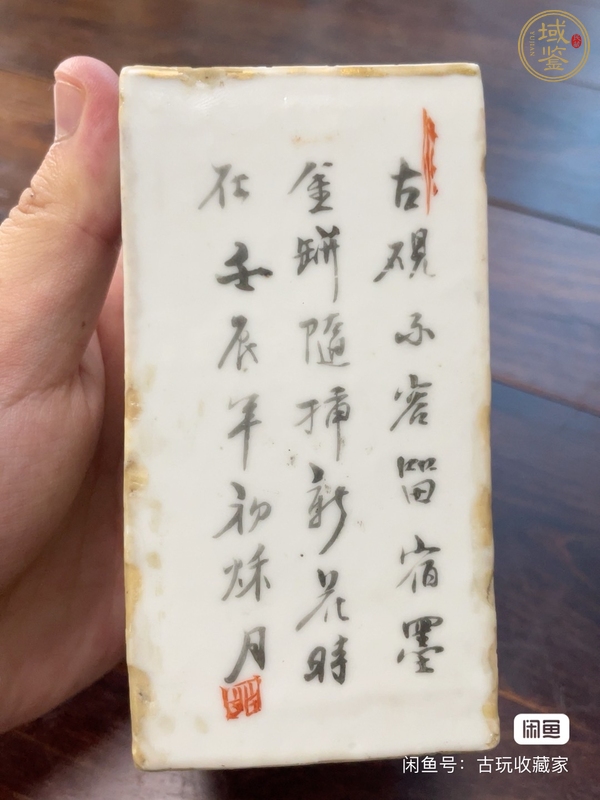 古硯不容留宿墨
金缾隨揷新花時
在壬辰年初秌月
域鉴
YUJIAN
闲鱼
闲鱼号：古玩收藏家